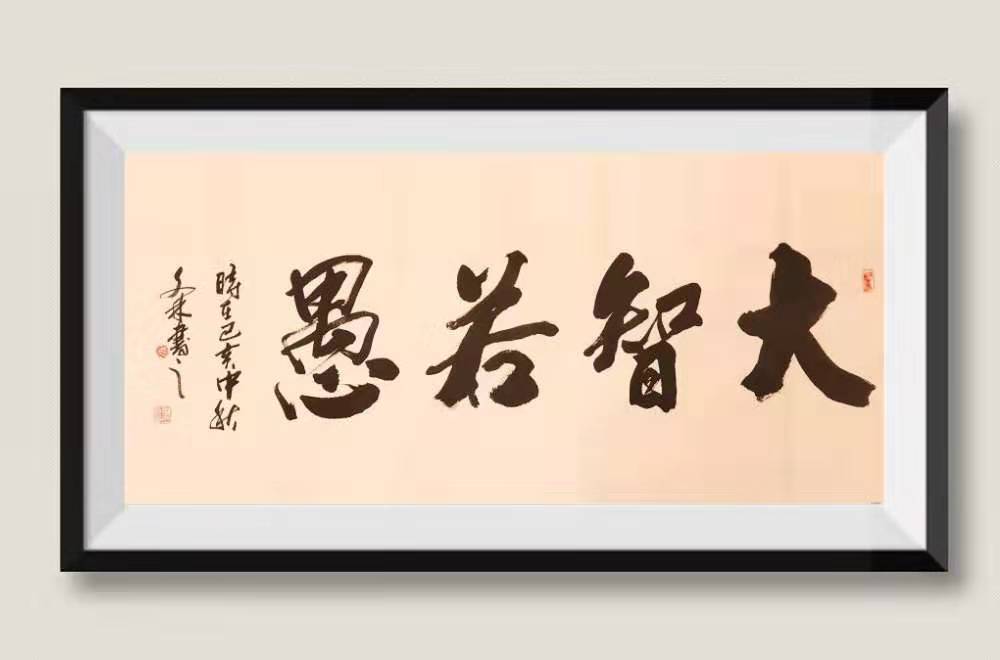 大智若愚
時在己亥中秋
文林書之